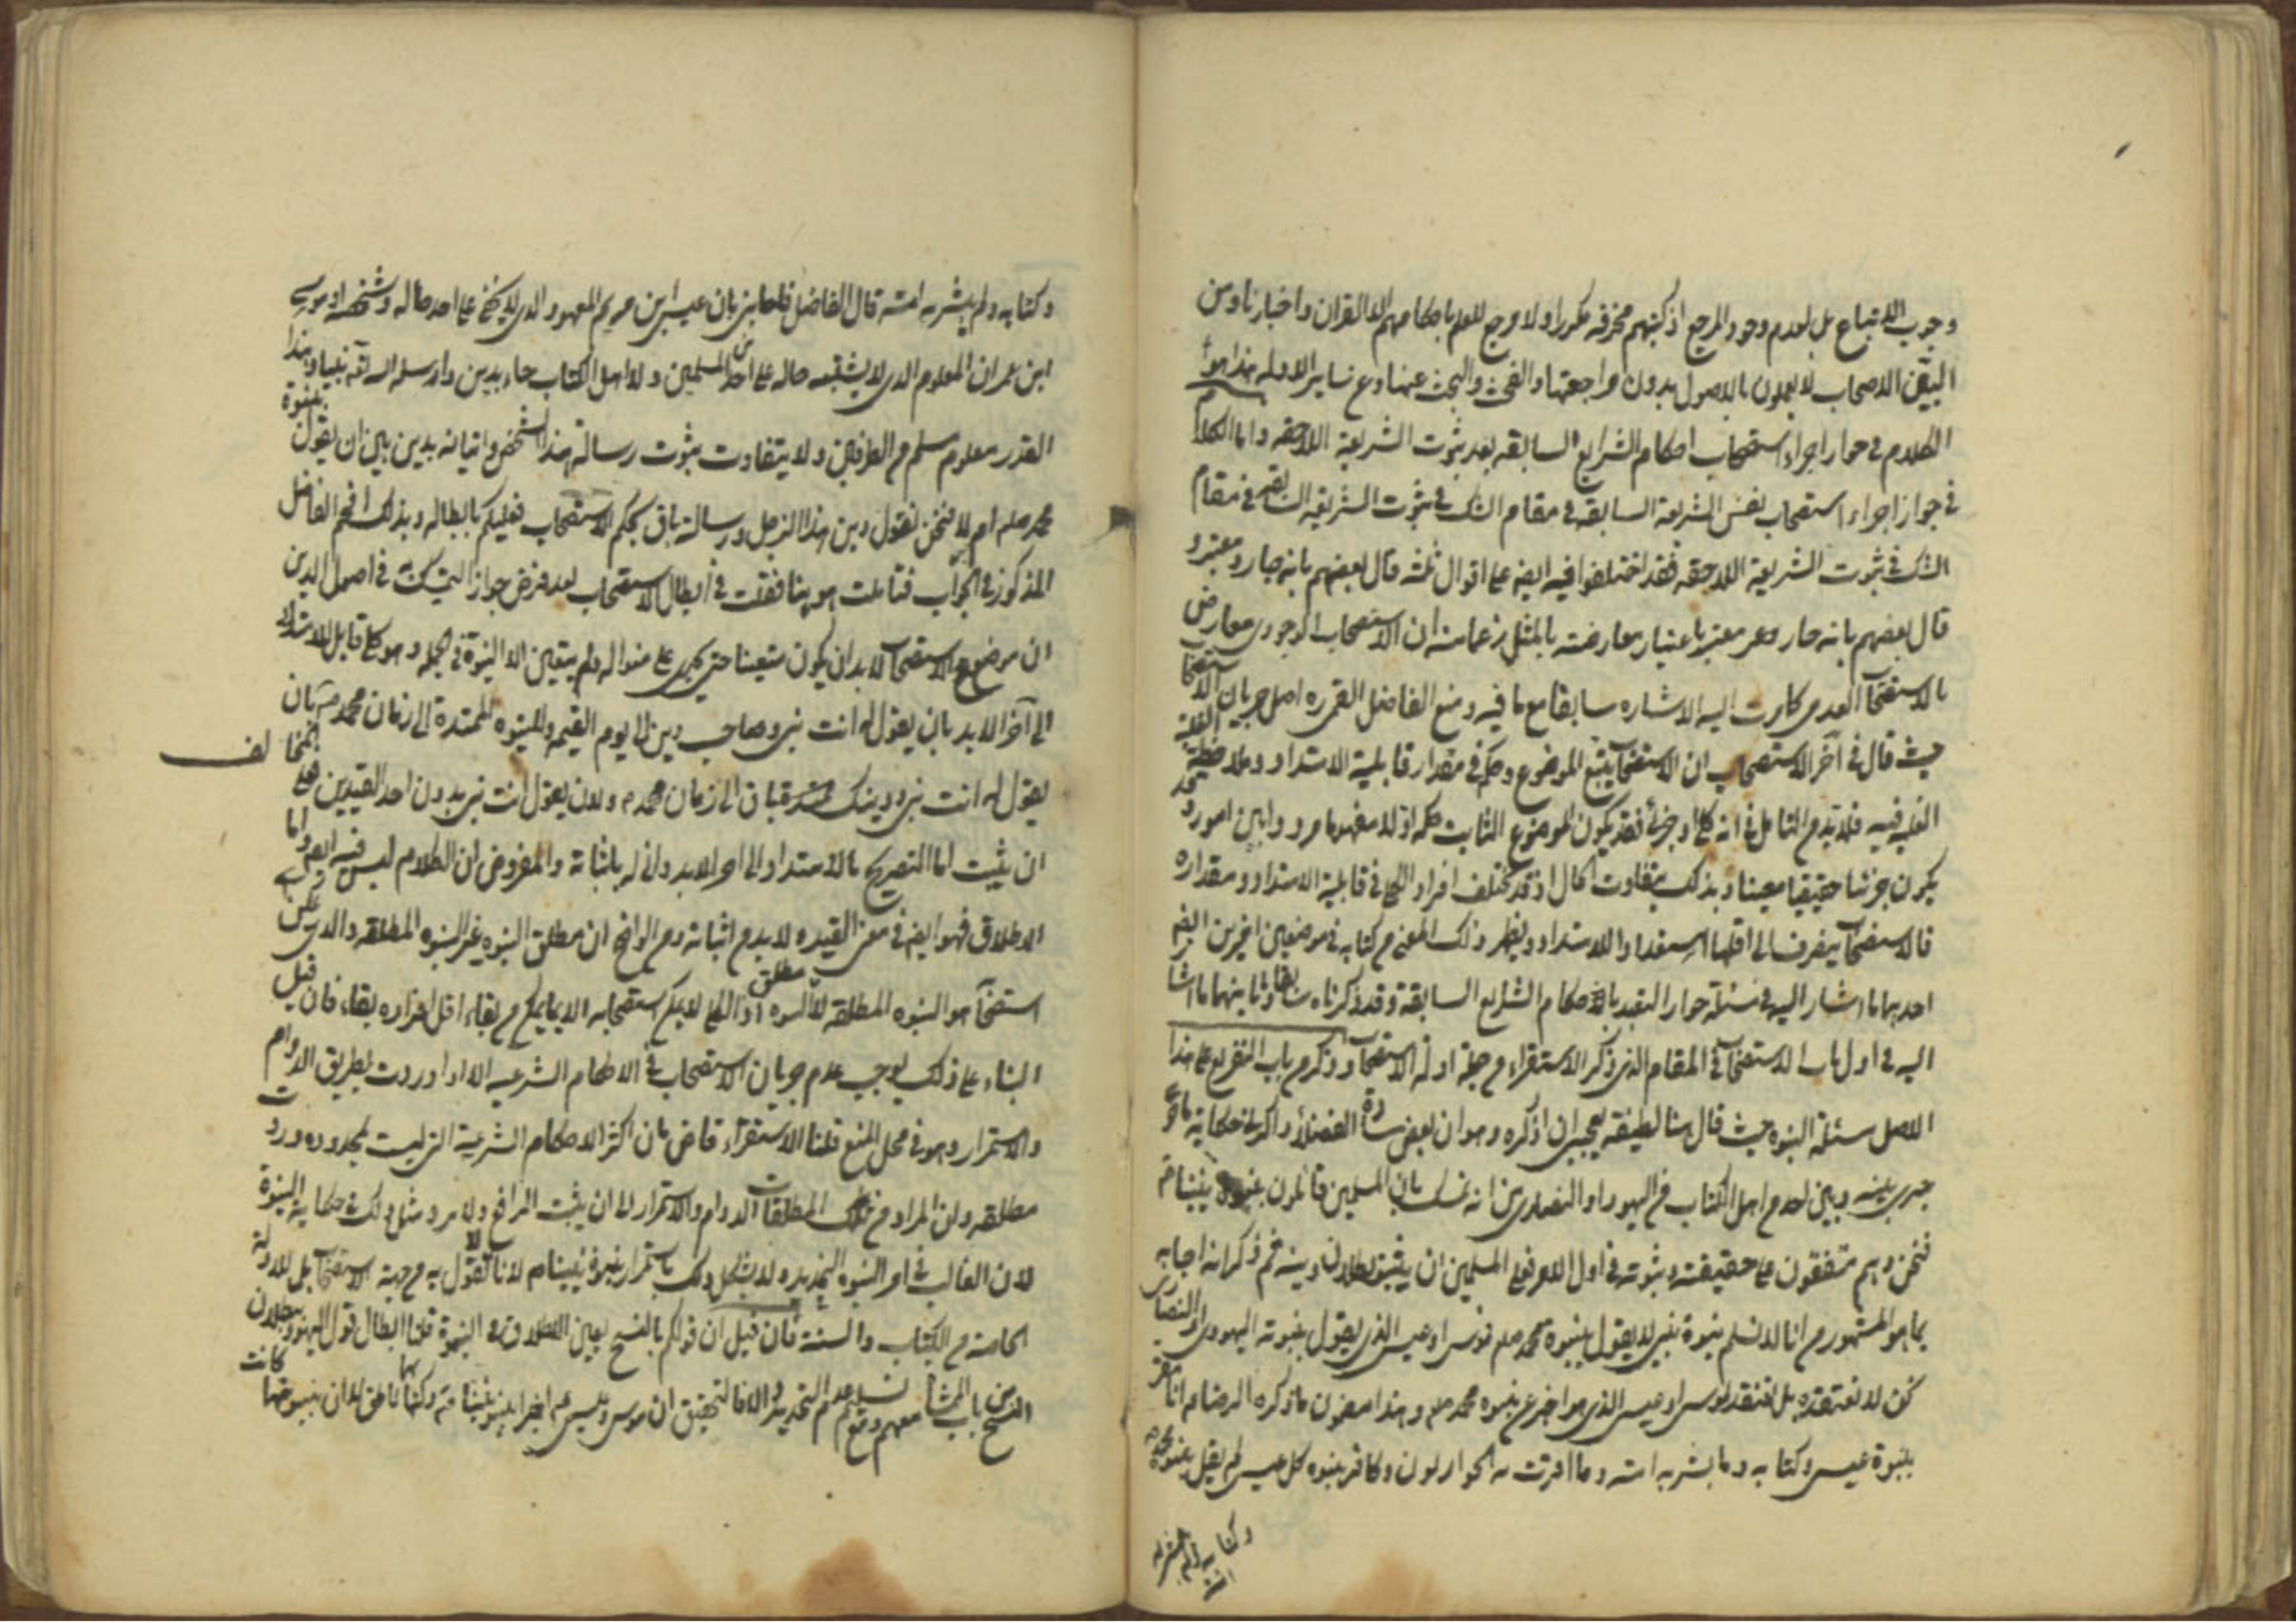 وجوب الاتباع بل لعدم وجود المرجع اذ كتبهم محرفه مكررا ولا مرجع للعلم باحكامهم الا القران واخبارنا ومن
اليقين الاصحاب لا يعملون بالاصول بدون مراجعتها والفحص والبحث عنها وعن ساير الادله هذا هو
الكلام في جواز اجراء استصحاب احكام الشرايع السابقه بعد ثبوت الشريعة اللاحقه واما الكلام
في جواز اجراء استصحاب نفس الشريعة السابقه في مقام الشك في ثبوت الشريعه في مقام
الشك في ثبوت الشريعه اللاحقه فقد اختلفوا فيه ايضا على اقوال ثلثه قال بعضهم بانه جار ومعتبر و
قال بعضهم بانه جار وغير معتبر باعتبار معارضته بالمثل زعما منه ان الاستصحاب الوجودى معارض
بالاستصحاب العدمى كما مرت اليه الاشاره سابقا مع ما فيه ومنع الفاضل القمى ره اصل جريان الاستصحا
حيث قال في آخر الاستصحاب ان الاستصحاب يتبع الموضوع وحكمه في مقدار قابلية الامتداد وملاحظة الغلبة
الغلبه فيه فلابد من التامل في انه كلى او جزئى فقد يكون الموضوع الثابت حكمه اولا مفهوما مرددا بين امور وقد
يكون جزئيا حقيقيا معينا وبذلك يتفاوت الحال اذ قد يختلف افراد الكلى في قابلية الامتداد ومقداره
فالاستصحاب ينصرف الى اقلها استعدادا للامتداد ويظهر ذلك المعنى من كتابه في موضعين اخرين ايضا
احديهما ما اشار اليه في مسئلة جواز التعبد باحكام الشرايع السابقة وقد ذكرناه سابقا وثانيهما ما اشا
اليه في اول باب الاستصحاب في المقام الذى ذكر الاستقراء من جملة ادلة الاستصحاب وذكر من باب التفريع على هذا
الاصل مسئلة النبوة حيث قال هنا لطيفه يعجبنى ان اذكره وهو ان بعض سادة الفضلاء ذاكرنى حكاية ما جرى
جرى بينه وبين احد من اهل الكتاب من اليهود او النصارى من انه تمسك بان المسلمين قائلون بنبوة نبينا م
فنحن وهم متفقون على حقيقته وثبوته في اول الامر فعلى المسلمين ان يثبتوا بطلان دينه ثم ذكر انه اجابه
بما هو المشهور من انا لا نسلم نبوة نبى لا يقول بنبوة محمد صلم فموسى او عيسى الذى يقول بنبوته اليهود او النصارى
نحن لا نعتقده بل نعتقد بموسى او عيسى الذى هو اخبر عن نبوة محمد صلم وهذا مضمون ما ذكره الرضا م انا مقر
بنبوة عيسى وكتابه وما بشر به امته وما اقرت به الحواريون وكافر بنبوة كل عيسى لم يقل بنبوة محمد
وكتابه ولم يبشر به امته
وكتابه ولم يبشر به امته قال الفاضل فاجابنى بان عيسى ابن مريم المعهود الذى لا يخفى على احد حاله وشخصه او موسى
ابن عمران المعلوم الذى لا يشتبه حاله على احد من المسلمين ولا اهل الكتاب جاء بدين وارسله الله نبيا وهذا
القدر معلوم مسلم من الطرفين ولا يتفاوت ثبوت رسالة هذا الشخص واتيانه بدين بين ان يقول بنبوة
محمد صلم ام لا فنحن نقول دين هذا الرجل ورسالته باق بحكم الاستصحاب فعليكم بابطاله وبذلك افحم الفاضل
المذكور في الجواب فتاملت هوينا فقلت في ابطال الاستصحاب بعد فرض جواز التمسك به في اصول الدين
ان موضوع الاستصحاب لابد ان يكون متعينا حتى يجرى على منواله ولم يتعين الا النبوة في الجمله وهو كلى قابل للامتداد
الى آخر الابد بان يقول له انت نبى وصاحب دين الى يوم القيمه وللنبوه الممتدة الى زمان محمد صم بان
يقول له انت نبى ودينك باق الى زمان محمد م ولان يقول انت نبى بدون احد القيدين فعلى المخالف
ان يثبت اما التصريح بالامتداد الى اخر الابد وانى له باثباته والمفروض ان الكلام ليس فيه ايضا واما
الاطلاق فهو ايضا في معنى القيد ولابد من اثباته ومن الواضح ان مطلق النبوه غير النبوه المطلقه والذى يمكن
استصحابه هو النبوه المطلقه لا مطلق النبوه اذ الكلى لا يمكن استصحابه الا بما يمكن من بقاء اقل افراده بقاء فان قيل
البناء على ذلك يوجب عدم جريان الاستصحاب في الاحكام الشرعيه الا اذا وردت بطريق الدوام
والاستمرار وهو في محل المنع قلنا الاستقراء قاض بان اكثر الاحكام الشرعية التى ليست بمحدوده وردت
مطلقه وان المراد من تلك المطلقات الدوام والاستمرار الى ان يثبت الرافع ولا يرد مثل ذلك حكاية النبوة
لان الغالب في امر النبوه التحديد ولا يشكل ذلك باستمرار نبوة نبينا م لانا لا نقول به من جهة الاستصحاب بل للادلة
الخاصه من الكتاب والسنه فان قيل ان قولكم بالنسخ يعين الاطلاق في النبوة قلنا ابطال قول اليهود ببطلان
النسخ من باب المماشاة معهم وعدم تسليم التحديد والا فالتحقيق ان موسى وعيسى عم اخبرا بنبوة نبينا صم وكتابهما ناطق لا ان نبوتهما كانت